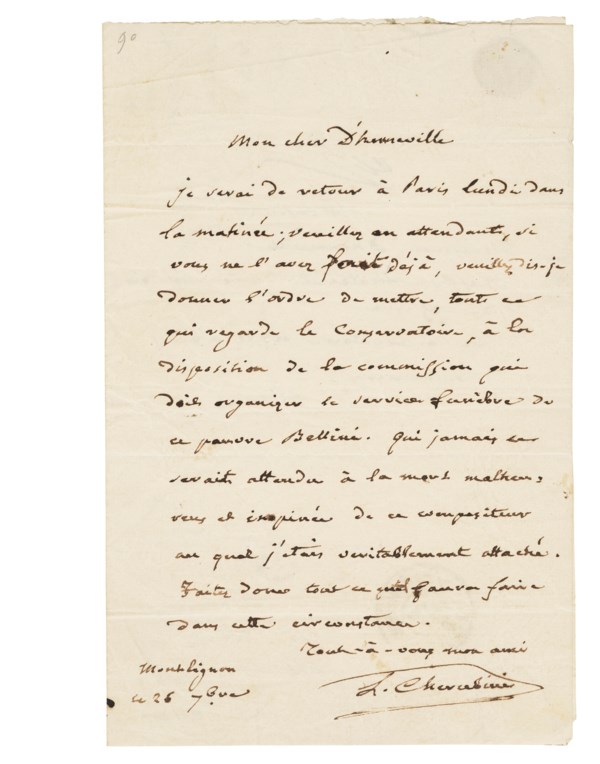 90
Mon cher D'henneville
je serai de retour à Paris lundi dans
la matinée; veuillez en attendant, si
vous ne l'avez fait déjà, veuillez dis-je
donner l'ordre de mettre, tout ce
qui regarde le Conservatoire, à la
disposition de la commission qui
doit organiser le service funèbre de
ce pauvre Bellini. Qui jamais se
serait attendu à la mort malheu-
reuse et inopinée de ce compositeur
au quel j'étais veritablement attaché.
Faites donc tout ce qu'il faudra faire
dans cette circonstance.
Tout-à-vous mon ami
Montlignon
L. Cherubini
ce 26 7bre